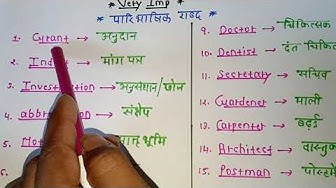 Very Imp
पारिभाषिक शब्द
1. Grant → अनुदान
2. Indent → मांग पत्र
3. Investigation → अनुसंधान/खोज
4. abbreviation → संक्षेप
5. भूमि
9. Doctor → चिकित्सक
10. Dentist → दंत
11. Secretary → सचिव
12. Gardener → माली
13. Carpenter → बढ़ई
14. Architect →
15. Postman →